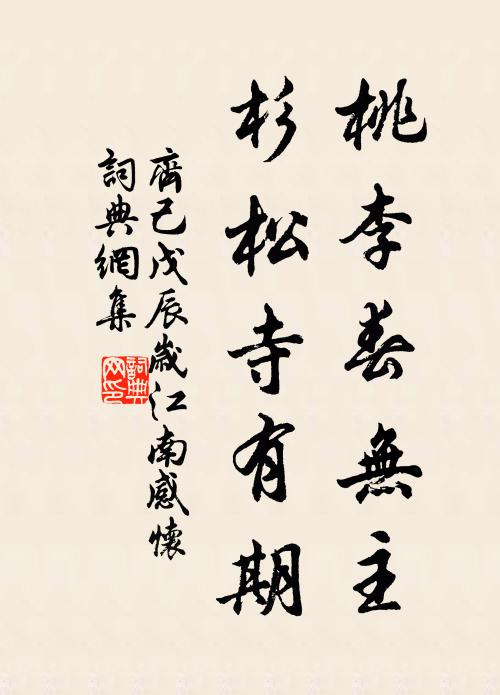 桃李春無主
杉松寺有期
齊己戊辰歲江南感懷
詞典網集
詞典網印